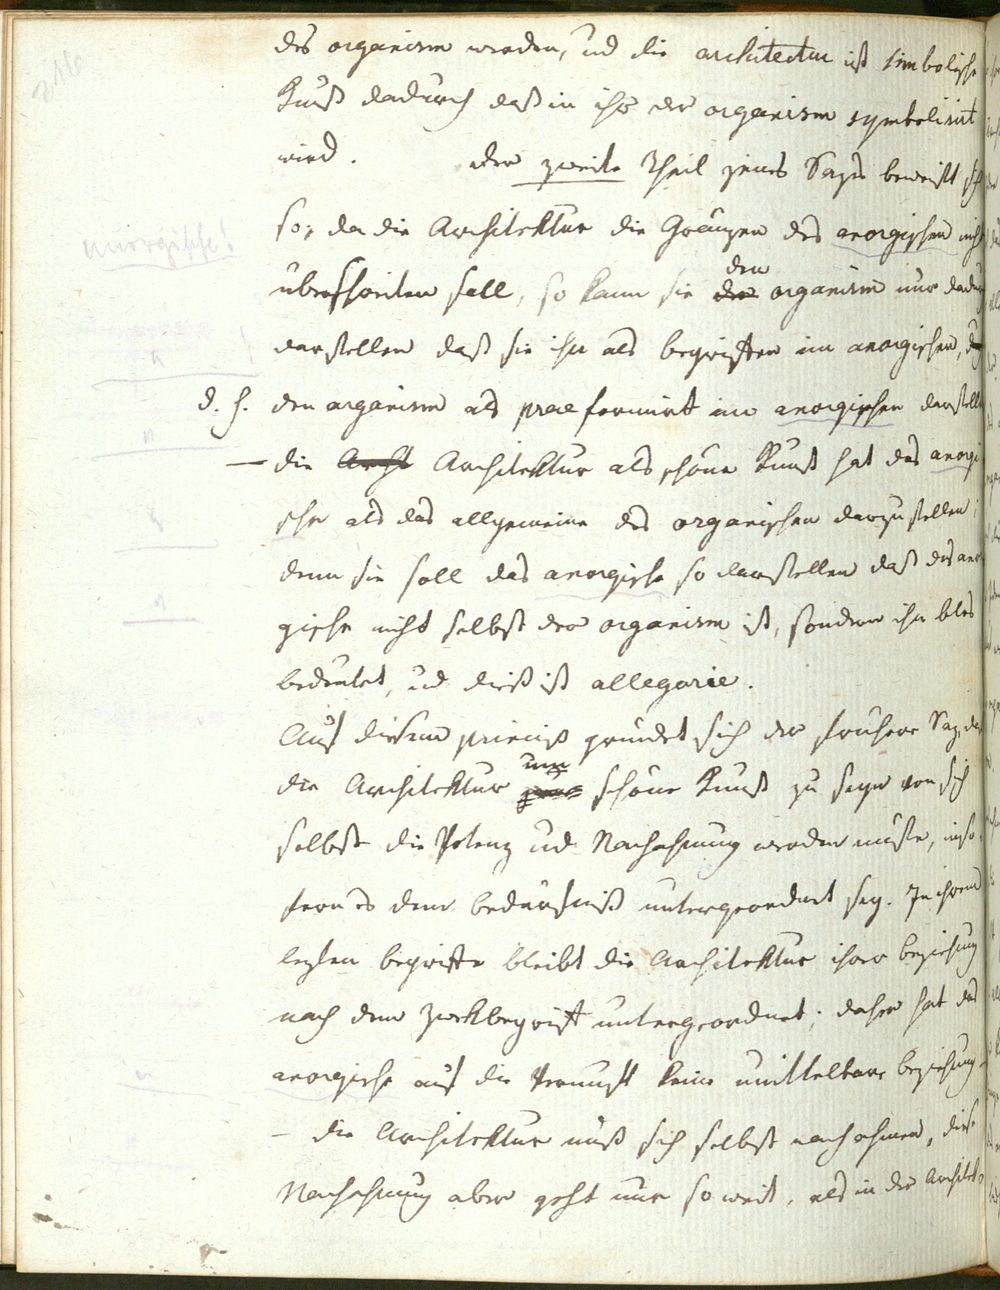 des organism werden, ud die architectur ist simbolische
Kunst dadurch daß in ihr der organism symbolisirt
wird. der zweite Theil jenes Sazes beweißt sich
so, da die Architektur die Gränzen des anorgischen nicht
anorgische!
überschreiten soll, so kann sie der den organism nur dadurch
darstellen daß sie ihn als begriffen im anorgischen,
d. h. den organism als praeformirt im anorgischen darstellt
— die Archt Architektur als schöne Kunst hat das anorgi
sche als das allgemeine des organischen darzustellen;
denn sie soll das anorgische so darstellen daß das anor
gische nicht selbst der organism ist, sondern ihn blos
bedeutet, ud dieß ist allegorie.
Auf diesem princip gründet sich der frühere Saz, daß
die Architektur um schöne Kunst zu seyn von sich
selbst die Potenz ud Nachahmung werden müße, inso
fern es dem bedürfniß untergeordnet sey. In ihrem
lezten begriffe bleibt die Architektur ihrer beziehung
nach dem Zwekbegriff untergeordnet; daher hat das
anorgische auf die Vernunft keine mittelbare beziehung
— die Architektur muß sich selbst nachahmen, diese
Nachahmung aber geht nur so weit, als in der Architek-